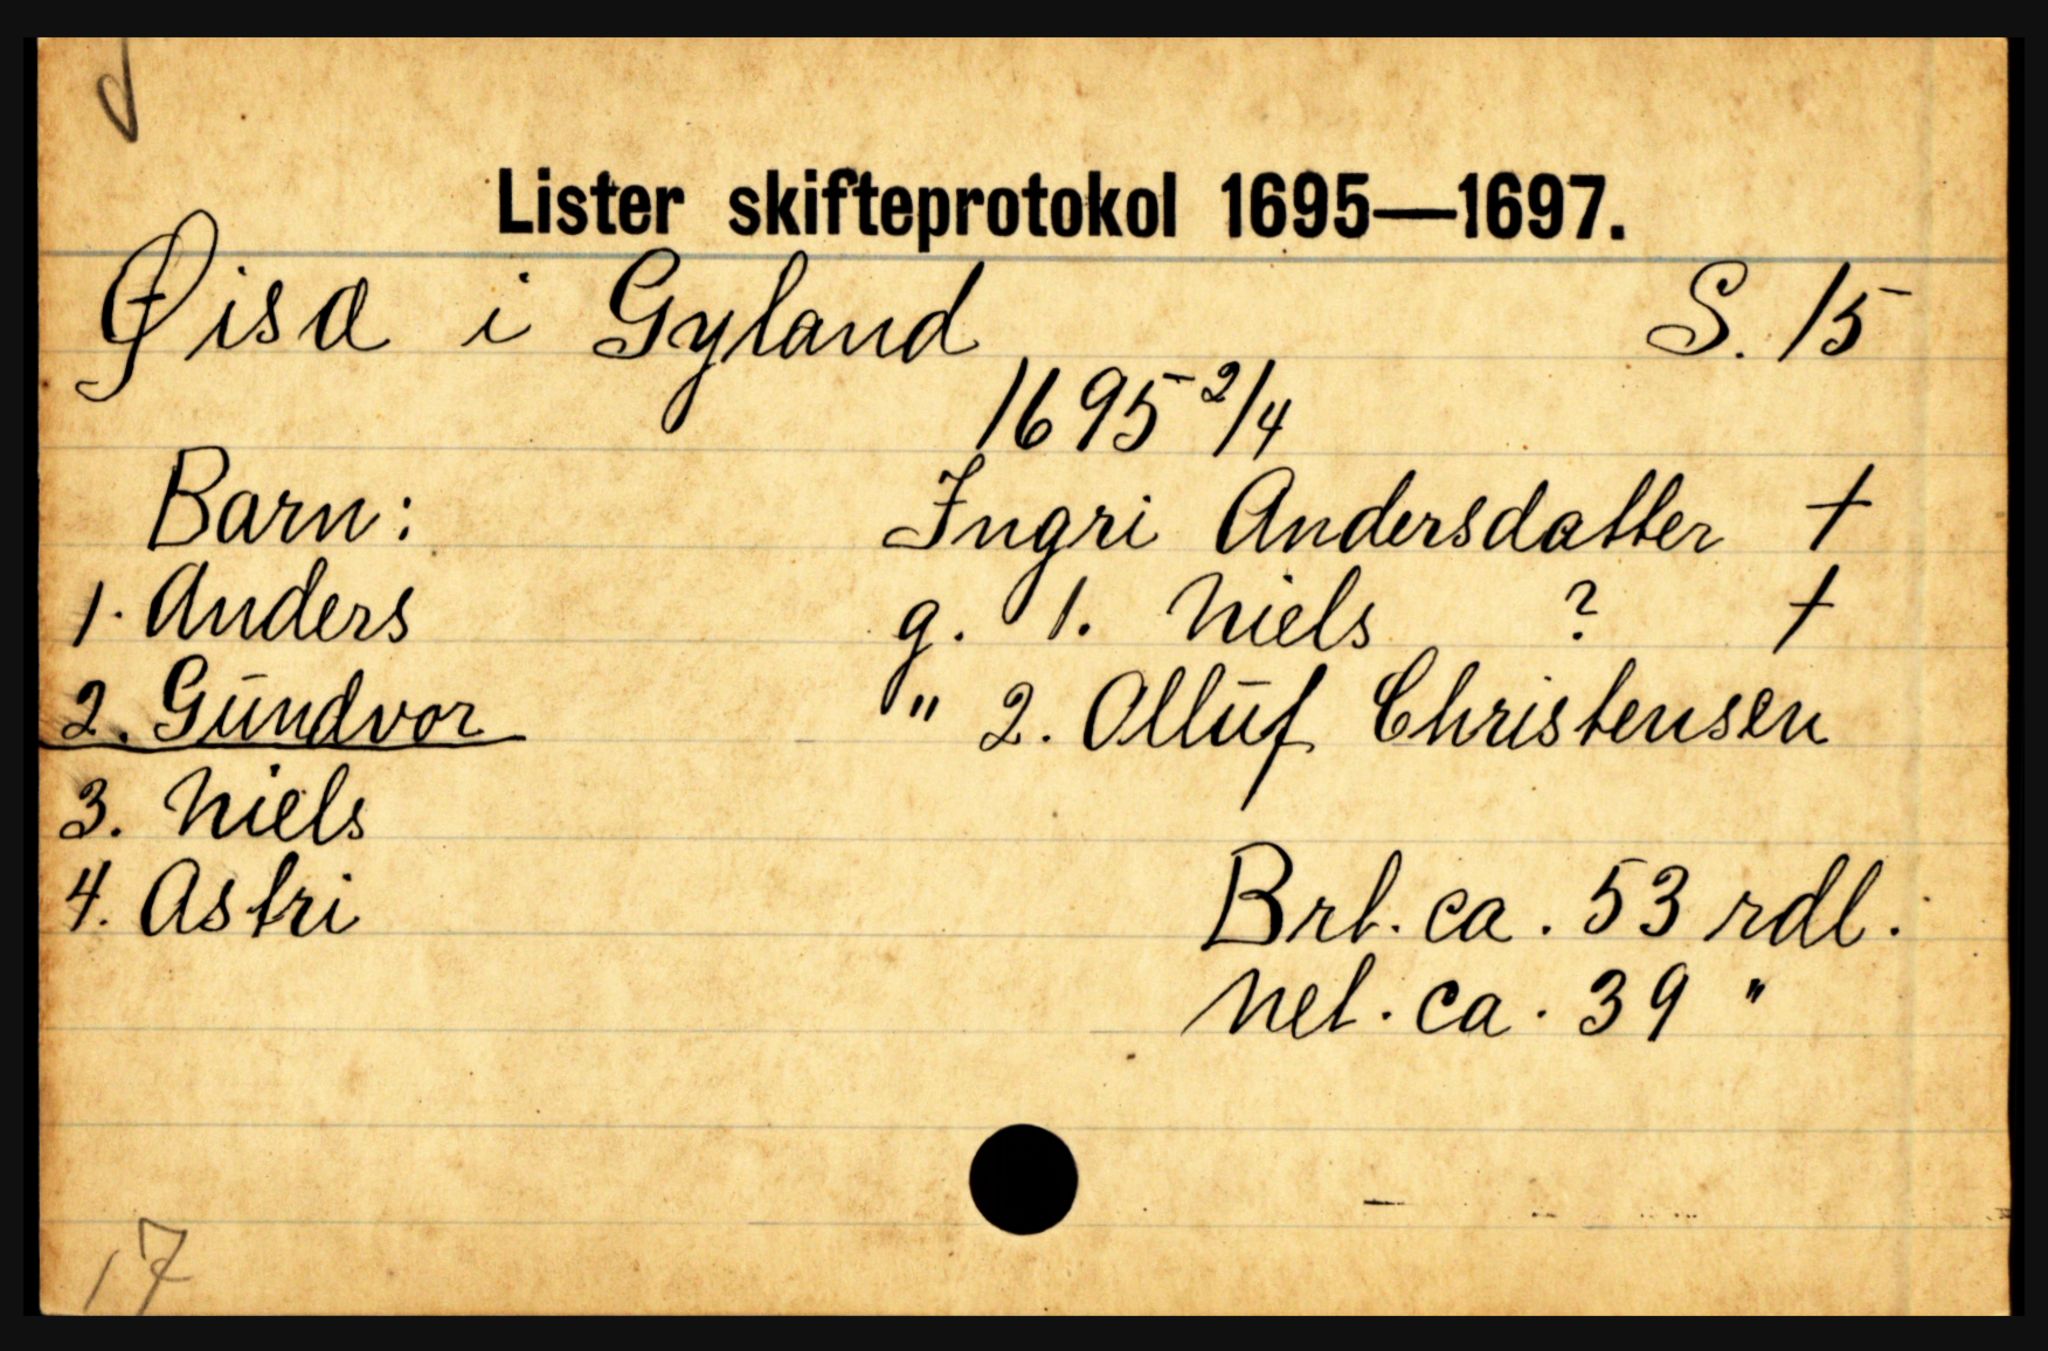 Lister skifteprotokol 1695—1697.
Øisæ i Gyland S. 15
1695 2/4
Barn: Ingri Andersdatter †
1. Anders g. 1. Niels ? †
2. Gundvor " 2. Olluf Christensen
3. Niels
4. Astri Brt. ca. 53 rdl.
Net. ca. 39 "
17